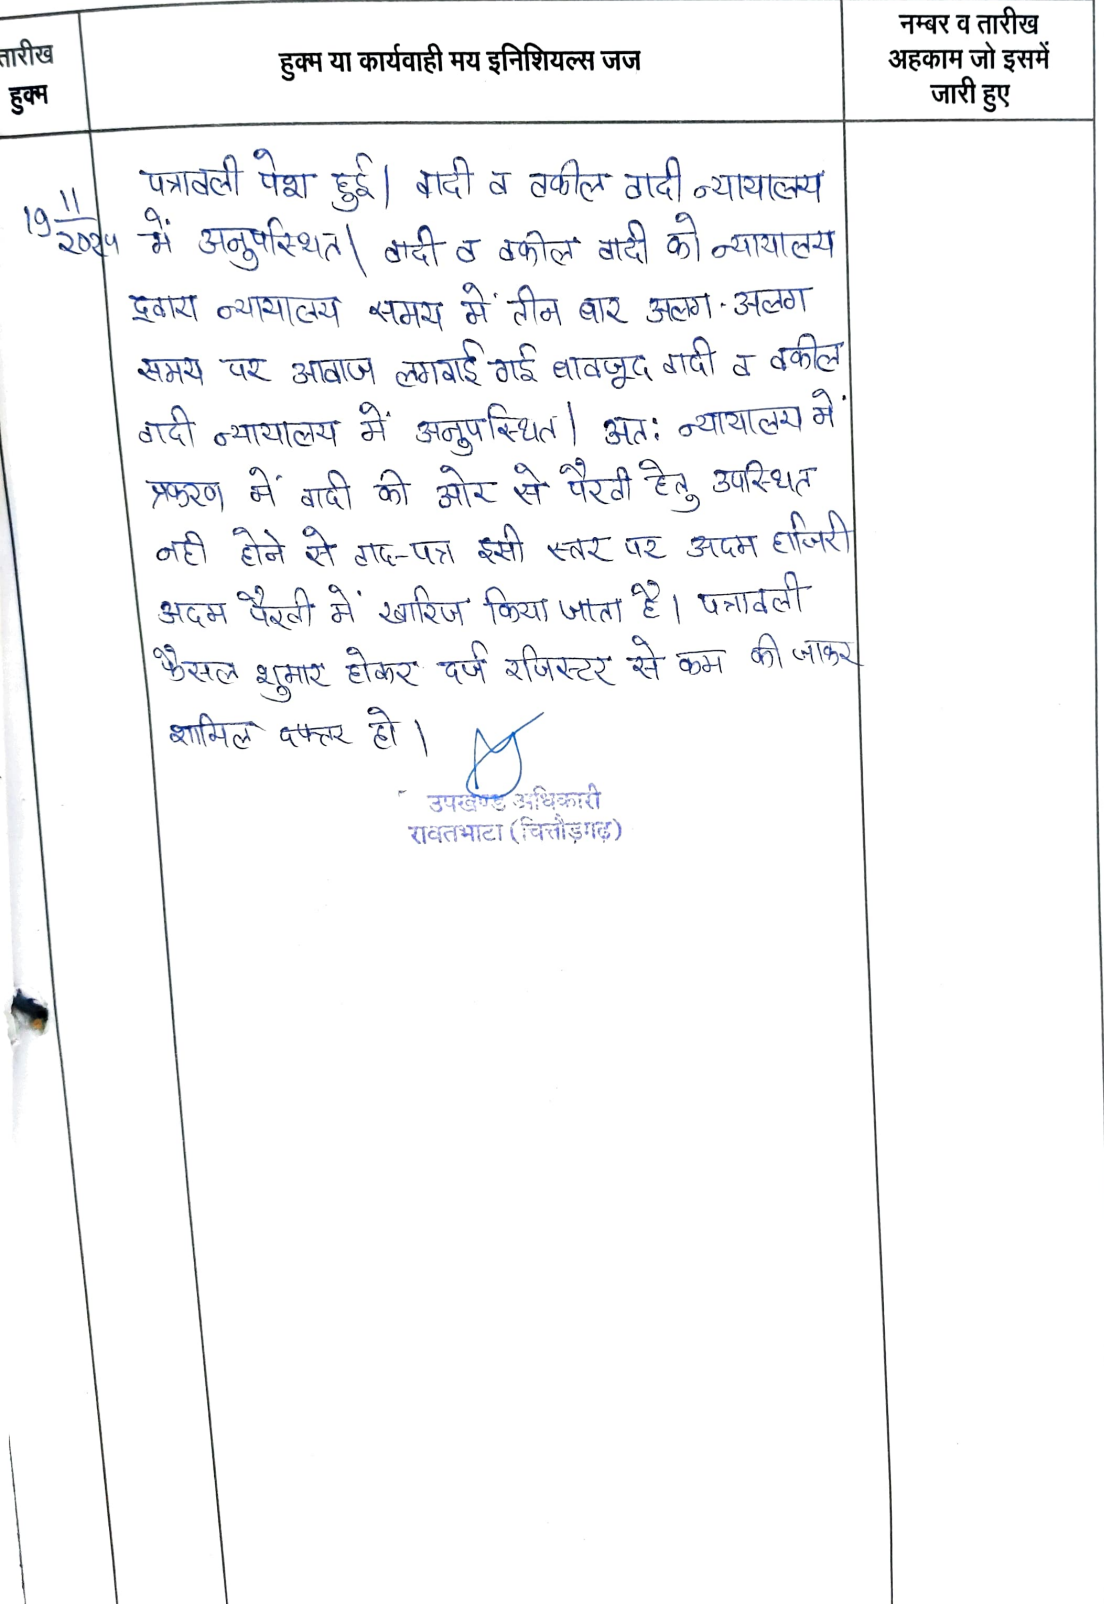 तारीख
हुक्म
हुक्म या कार्यवाही मय इनिशियल्स जज
नम्बर व तारीख
अहकाम जो इसमें
जारी हुए
19 11
पत्रावली पेश हुई। वादी व वकील वादी न्यायालय
में अनुपस्थित। वादी व वकील वादी को न्यायालय
द्वारा न्यायालय समय में तीन बार अलग-अलग
समय पर आवाज लगवाई गई बावजूद वादी व वकील
वादी न्यायालय में अनुपस्थित। अतः न्यायालय में
प्रकरण में वादी की ओर से पैरवी हेतु उपस्थित
नही होने से वाद-पत्र इसी स्तर पर अदम हाजिरी
अदम पैरवी में खारिज किया जाता है। पत्रावली
फैसल शुमार होकर दर्ज रजिस्टर से कम की जाकर
शामिल दफ्तर हो।
उपखण्ड अधिकारी
रावतभाटा (चित्तौड़गढ़)